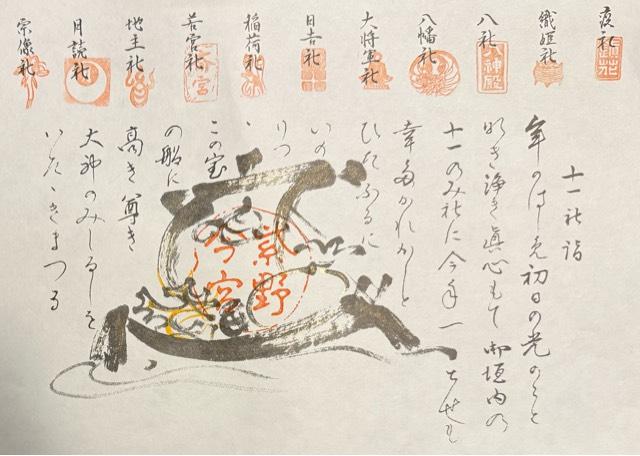 疫社
鎮花
織姫社
八社
八神殿
八幡社
大将軍社
日吉社
稲荷社
若宮社
地主社
月読社
宗像社
十一社詣
年のはしめ初日の光のこと
き浄き眞心もて御垣内の
十一のみ社に今年一とせも
幸多かれかしと
ひたふるに
いの
りつ
ゝ
この宝
の船に
高き尊き
大神のみしるしを
いたゝきまつる
紫野
今宮